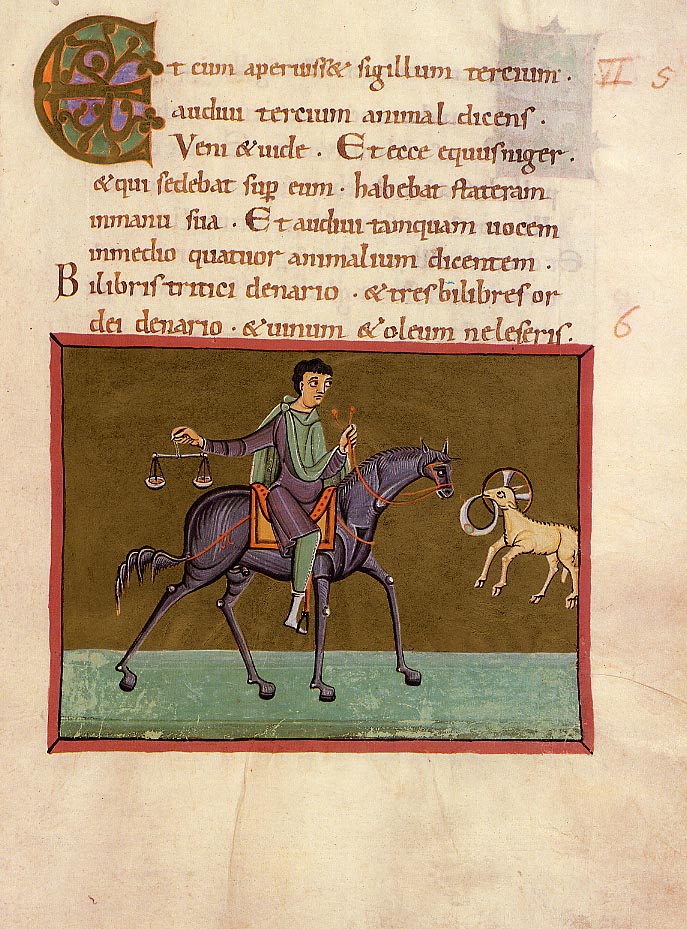 Et cum aperuiss& sigillum tercium .
VI 5
audiui tercium animal dicens .
Veni & uide . Et ecce equus niger .
& qui sedebat sup eum . habebat stateram
in manu sua . Et audiui tamquam uocem
in medio quatuor animalium dicentem .
Bilibris tritici denario . & tres bilibres or
dei denario . & uinum & oleum ne leseris .
6